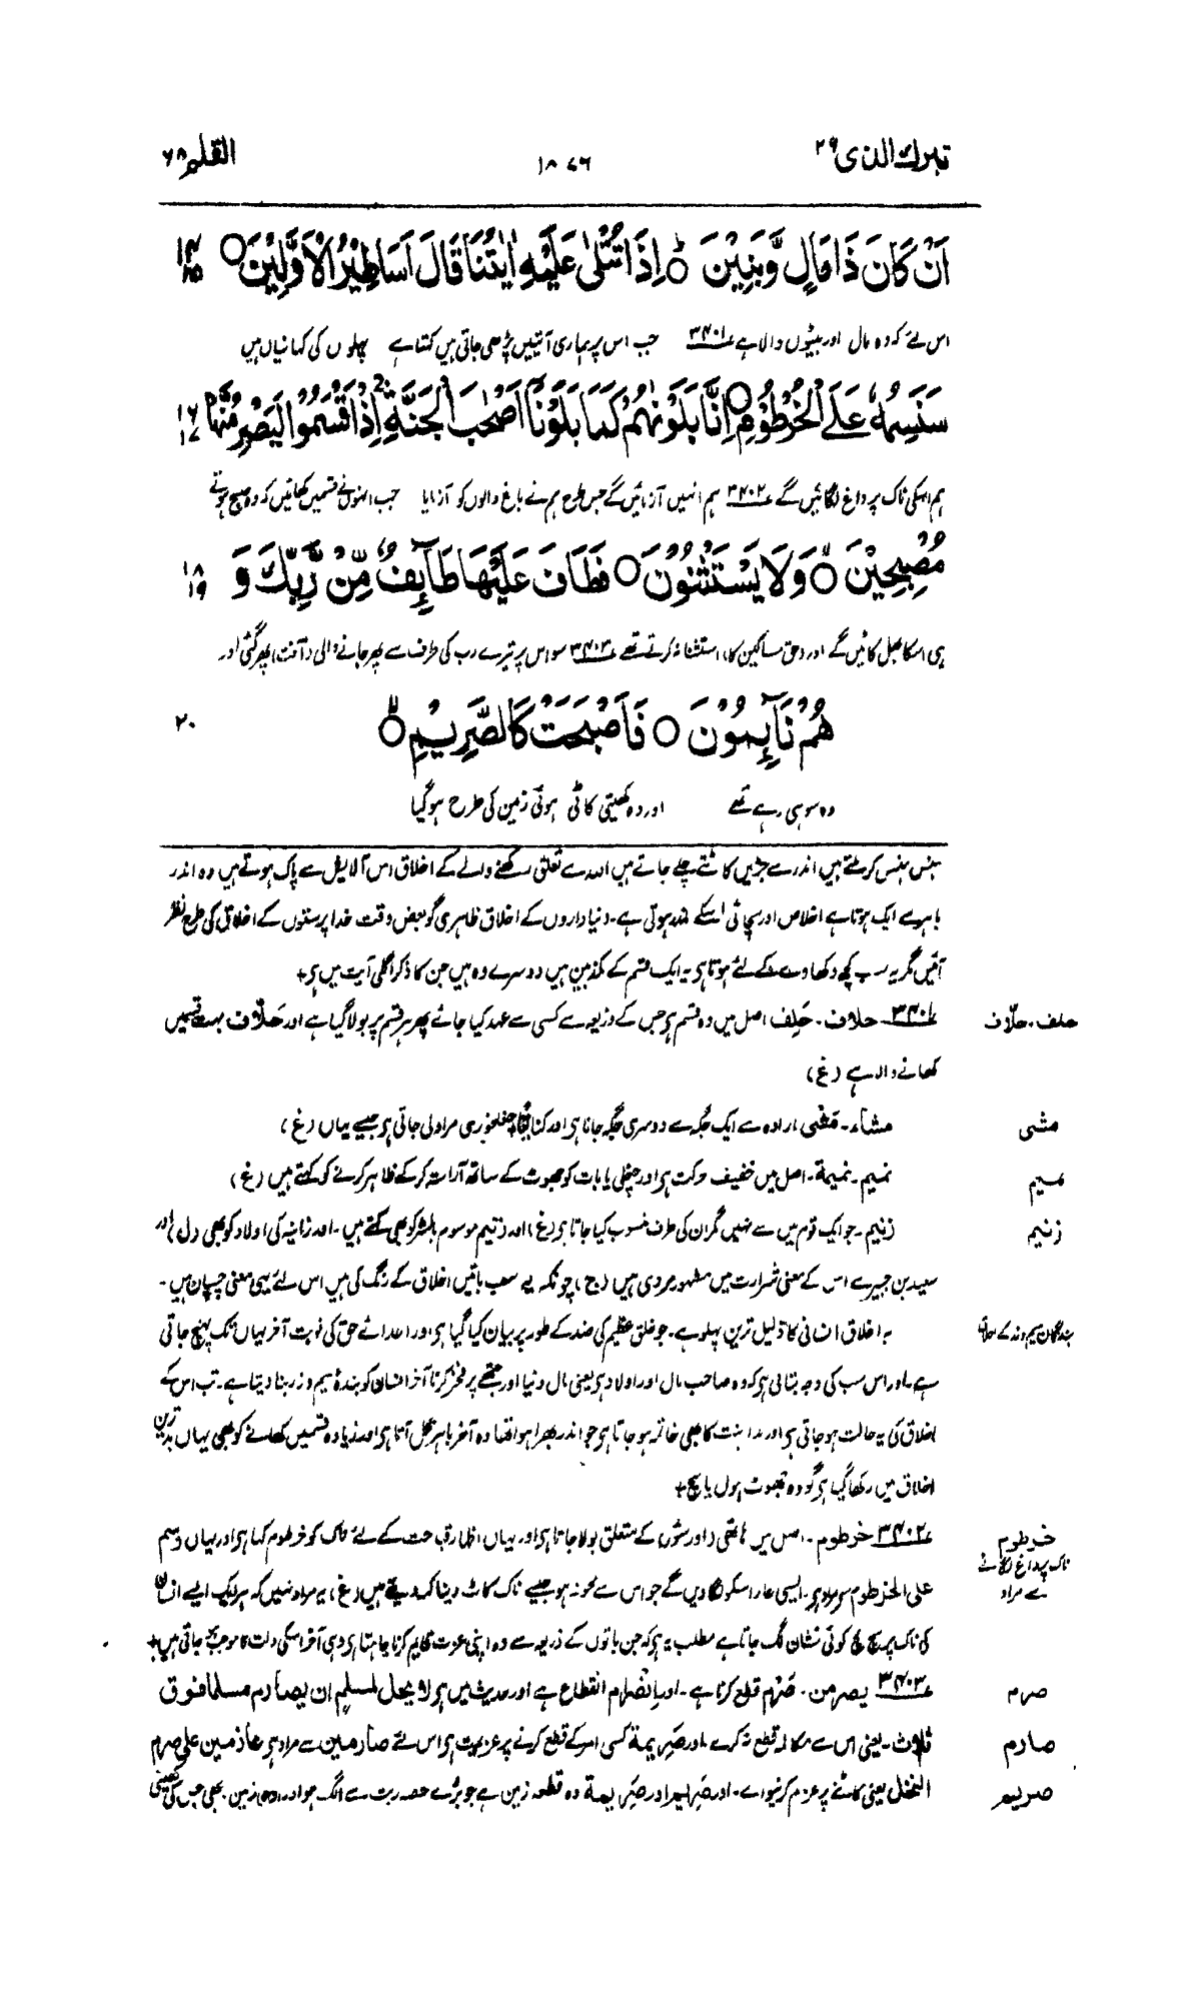 تبرك الذی ۲۹
۱۸۷۶
القلم ۶۸
اَنْ كَانَ ذَا مَالٍ وَّبَنِيْنَ ۝ اِذَا تُتْلٰى عَلَيْهِ اٰيٰتُنَا قَالَ اَسَاطِيْرُ الْاَوَّلِيْنَ ۝ ۱۴ ۱۵
اس لئے کہ وہ مال اور بیٹوں والا ہے ۳۴۰۱ جب اس پر ہماری آیتیں پڑھی جاتی ہیں کہتا ہے پہلوں کی کہانیاں ہیں
سَنَسِمُهٗ عَلَى الْخُرْطُوْمِ ۝ اِنَّا بَلَوْنٰهُمْ كَمَا بَلَوْنَآ اَصْحٰبَ الْجَنَّةِ اِذْ اَقْسَمُوْا لَيَصْرِمُنَّهَا ۱۶ ۱۷
ہم اسکی ناک پر داغ لگائیں گے ۳۴۰۲ ہم انہیں آزمائیں گے جس طرح ہم نے باغ والوں کو آزمایا جب انہوں نے قسمیں کھائیں کہ وہ صبح ہوتے
مُصْبِحِيْنَ ۝ وَلَا يَسْتَثْنُوْنَ ۝ فَطَافَ عَلَيْهَا طَآىِٕفٌ مِّنْ رَّبِّكَ وَ ۱۸ ۱۹
ہی اسکا پھل کاٹیں گے اور (حق مساکین کا) استثنا نہ کرتے تھے ۳۴۰۳ سو اس پر تیرے رب کی طرف سے پھر جانے والی (آفت) پھر گئی اور
هُمْ نَآىِٕمُوْنَ ۝ فَاَصْبَحَتْ كَالصَّرِيْمِ ۝ ۲۰
وہ سو ہی رہے تھے اور وہ کھیتی کاٹی ہوئی زمین کی طرح ہو گیا
ہنس ہنس کر ملتے ہیں اندر سے جڑیں کاٹتے چلے جاتے ہیں اللہ سے تعلق رکھنے والے کے اخلاق اس آلایش سے پاک ہوتے ہیں وہ اندر
باہر سے ایک ہوتا ہے اخلاص اور سچائی اسکے اندر ہوتی ہے۔ دنیاداروں کے اخلاق ظاہری گو بعض وقت خدا پرستوں کے اخلاق کی طرح نظر
آئیں مگر یہ سب کچھ دکھاوے کے لئے ہوتا ہے یہ ایک قسم کے مکذبین ہیں دوسرے وہ ہیں جن کا ذکر اگلی آیت میں ہے+
حلف۔ حلّاف
۳۴۰۱ حلاف۔ حَلِف اصل میں وہ قسم ہے جس کے ذریعہ سے کسی سے عہد کیا جائے پھر ہر قسم پر بولا گیا ہے اور حَلَّاف بہت قسمیں
کھانے والا ہے (غ)
مشی
مشاء۔ مَشْی ارادہ سے ایک جگہ سے دوسری جگہ جانا ہے اور کنایۃً چغلخوری مراد لی جاتی ہے جیسے یہاں (غ)
نمیم
نمیم۔ نمیمۃ۔ اصل میں خفیف حرکت ہے اور چغلی یا بات کو جھوٹ کے ساتھ آراستہ کر کے ظاہر کرنے کو کہتے ہیں (غ)
زنیم
زنیم۔ جو ایک قوم میں سے نہیں مگر ان کی طرف منسوب کیا جاتا ہے (غ) اور زنیم موسوم بالشر کو بھی کہتے ہیں۔ اور زانیہ کی اولاد کو بھی (ل) اور
سعید بن جبیر سے اس کے معنی شرارت میں مشہور مروی ہیں (ج) چونکہ یہ سب باتیں اخلاق کے رنگ کی ہیں اس لئے یہی معنی چسپاں ہیں۔
بندگان سیم و زر کے اخلاق
یہ اخلاق انسانی کا ذلیل ترین پہلو ہے۔ جو خلق عظیم کی ضد کے طور پر بیان کیا گیا ہے اور اعدائے حق کی نوبت آخر یہاں تک پہنچ جاتی
ہے۔ اور اس سب کی وجہ بتائی ہے کہ وہ صاحب مال اور اولاد ہے یعنی مال دنیا اور جتھے پر فخر کرنا آخر انسان کو بندۂ سیم و زر بنا دیتا ہے۔ تب اس کے
اخلاق کی یہ حالت ہو جاتی ہے اور مداہنت کا بھی خاتمہ ہو جاتا ہے جو اندر بھرا ہوا تھا وہ آخر باہر نکل آتا ہے اور زیادہ قسمیں کھانے کو بھی یہاں بدترین
اخلاق میں رکھا گیا ہے گو وہ جھوٹ ہوں یا سچ+
خرطوم
ناک پر داغ لگانے سے مراد
۳۴۰۲ خرطوم۔ اصل میں ہاتھی (اور سؤر) کے متعلق بولا جاتا ہے اور یہاں اظہار قباحت کے لئے ناک کو خرطوم کہا ہے اور یہاں وسم
علی الخرطوم سے مراد ہے۔ ایسی عار اسکو لگا دیں گے جو اس سے محو نہ ہو جیسے ناک کاٹ دینا کہہ دیتے ہیں (غ) یہ مراد نہیں کہ ہر ایک ایسے انسان
کی ناک پر سچ مچ کوئی نشان لگ جاتا ہے مطلب یہ ہے کہ جن باتوں کے ذریعہ سے وہ اپنی عزت قائم کرنا چاہتا ہے وہی آخر اسکی ذلت کا موجب ہو جاتی ہیں+
صرم
۳۴۰۳ یصرمن۔ صَرْم قطع کرنا ہے۔ اور اِنْصِرام انقطاع ہے اور حدیث میں ہے لا یحل لمسلم ان یصارم مسلما فوق
صارم
ثلاث۔ یعنی اس سے مکالمہ قطع نہ کرے اور صَرِیمۃ کسی امر کے قطع کرنے پر عزیمت ہے اس لئے صارمین سے مراد ہے عازمین علی صرم
صریم
النخل یعنی کاٹنے پر عزم کرنیوالے۔ اور صَرِیم اور صَرِیمۃ وہ قطعہ زمین ہے جو بڑے حصہ ریت سے الگ ہو اور (وہ) زمین بھی جس کی کھیتی